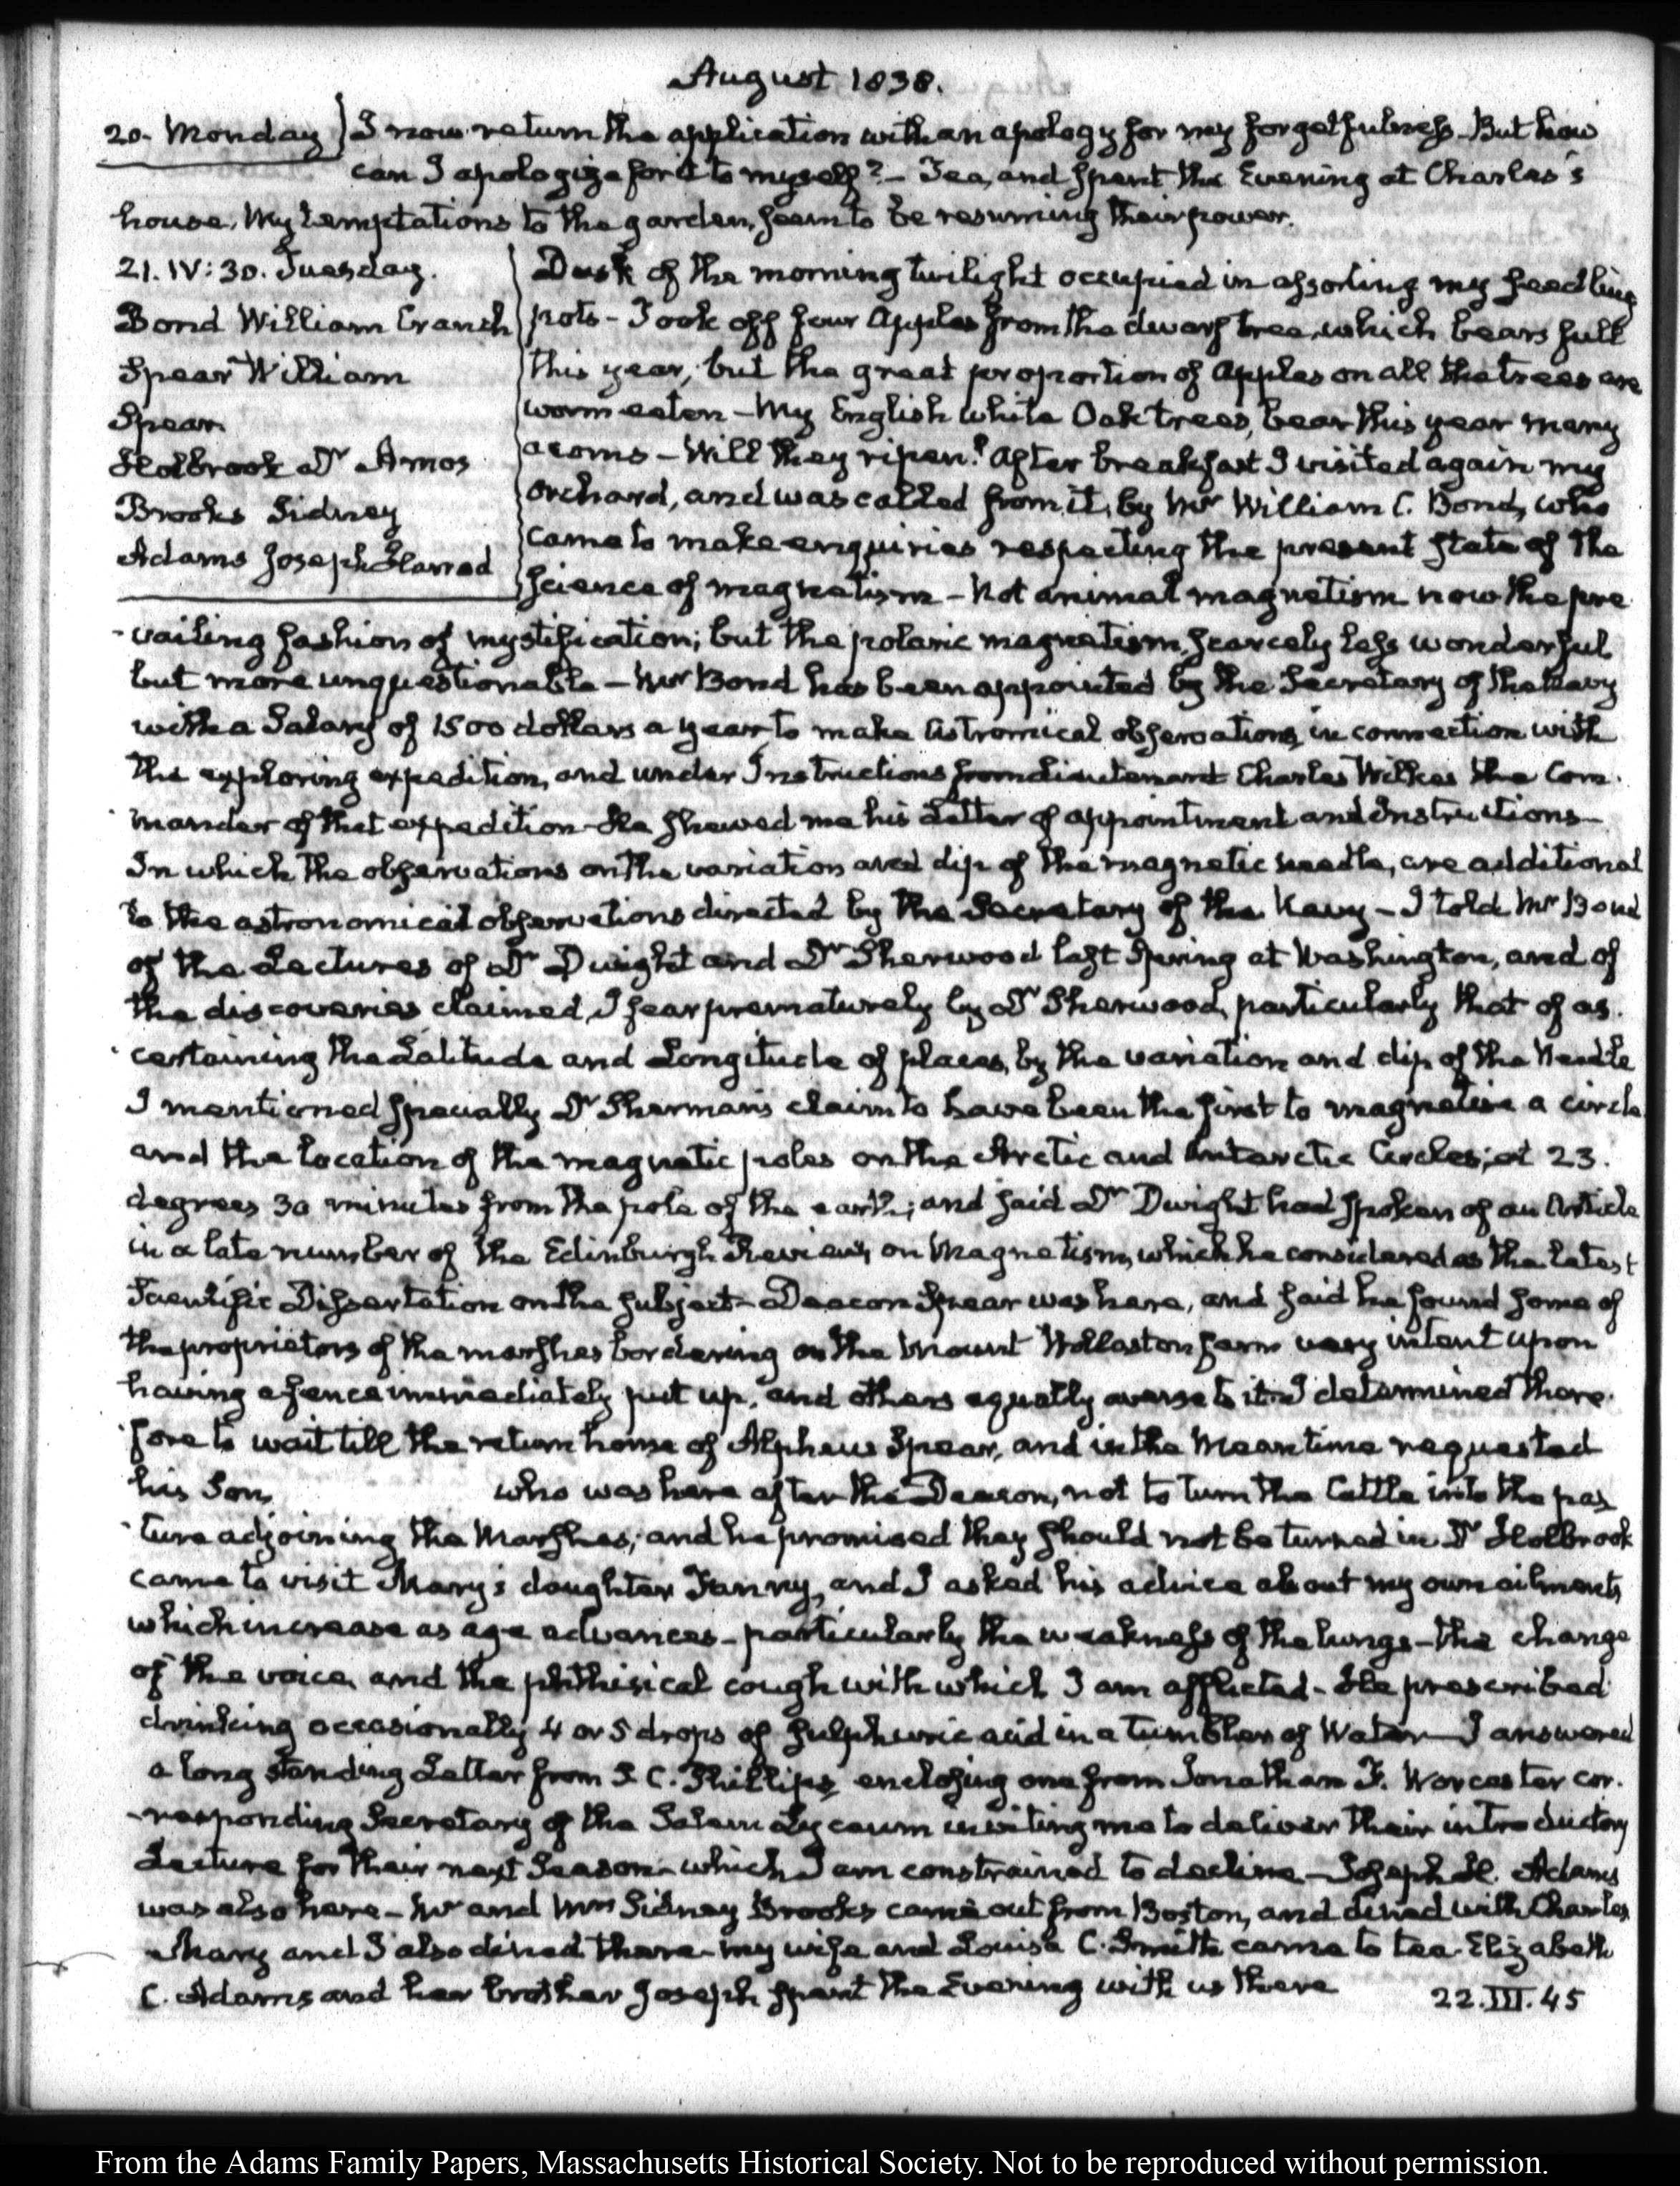 August 1838.
20. Monday) I now return the application with an apology for my forgetfulness. But how
can I apologize for it to myself? — Tea, and spent the Evening at Charles's
house. My temptations to the garden, seem to be resuming their power.
21. IV:30. Tuesday.
Bond William Cranch
Spear William
Spear
Holbrook Dr Amos
Brooks Sidney
Adams Joseph Harrod
Dusk of the morning twilight occupied in assorting my seedling
pots — Took off four Apples from the dwarf tree, which bears full
this year, but the great proportion of Apples on all the trees are
worm eaten — My English white Oak trees, bear this year many
acorns — Will they ripen? After breakfast I visited again my
orchard, and was called from it, by Mr William C. Bond, who
came to make enquiries respecting the present state of the
science of magnetism — Not animal magnetism now the pre
-vailing fashion of mystification; but the polaric magnetism, scarcely less wonderful
but more unquestionable — Mr Bond has been appointed by the Secretary of the Navy
with a Salary of 1500 dollars a year to make Astromical observations, in connection with
the exploring expedition, and under Instructions from Lieutenant Charles Wilkes the Com-
mander of that expedition — He shewed me his Letter of appointment and Instructions —
In which the observations on the variation and dip of the magnetic needle, are additional
to the astronomical observations directed by the Secretary of the Navy — I told Mr Bond
of the Lectures of Dr Dwight and Dr Sherwood last Spring at Washington, and of
the discoveries claimed, I fear prematurely by Dr Sherwood, particularly that of as-
certaining the Latitude and Longitude of places, by the variation and dip of the Needle
I mentioned specially Dr Sherman's claim to have been the first to magnetise a circle
and the location of the magnetic poles on the Arctic and Antarctic Circles; at 23.
degrees 30 minutes from the pole of the earth; and said Dr Dwight had spoken of an Article
in a late number of the Edinburgh Review, on Magnetism, which he considered as the latest
Scientific Dissertation on the subject — Deacon Spear was here, and said he found some of
the proprietors of the marshes bordering on the Mount Wollaston farm very intent upon
having a fence immediately put up, and others equally averse to it. I determined there-
fore to wait till the return home of Alpheus Spear, and in the Meantime requested
his Son, who was here after the Deacon, not to turn the Cattle into the pas
-ture adjoining the Marshes; and he promised they should not be turned in. Dr Holbrook
came to visit Mary's daughter Fanny, and I asked his advice about my own ailments
which increase as age advances — particularly the weakness of the lungs — the change
of the voice, and the phthisical cough with which I am afflicted — He prescribed
drinking occasionally 4 or 5 drops of sulphuric acid in a tumbler of Water — I answered
a long standing Letter from S. C. Phillips, enclosing one from Jonathan F. Worcester cor-
-responding Secretary of the Salem Lyceum inviting me to deliver their introductory
Lecture for their next Season — which I am constrained to decline — Joseph H. Adams
was also here — Mr and Mrs Sidney Brooks came out from Boston, and dined with Charles
Mary and I also dined there — My wife and Louisa C. Smith came to tea. Elizabeth
C. Adams and her brother Joseph spent the Evening with us there 22. III. 45
From the Adams Family Papers, Massachusetts Historical Society. Not to be reproduced without permission.